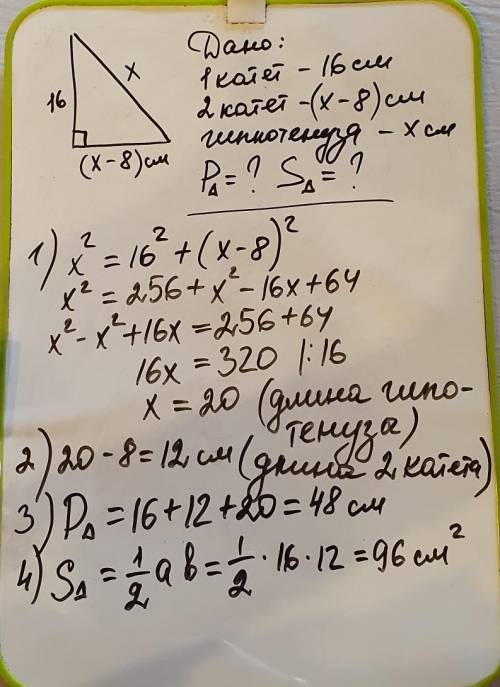 16
x
(x-8)см
Дано:
1 катет - 16 см
2 катет -(x-8) см
гипотенуза - x см
P△ = ? S△ = ?
1) x² = 16² + (x-8)²
x² = 256 + x² - 16x + 64
x² - x² + 16x = 256 + 64
16x = 320 |: 16
x = 20 (длина гипо-
тенуза)
2) 20 - 8 = 12 см (длина 2 катета)
3) P△ = 16 + 12 + 20 = 48 см
4) S△ = 1/2 a b = 1/2 · 16 · 12 = 96 см²